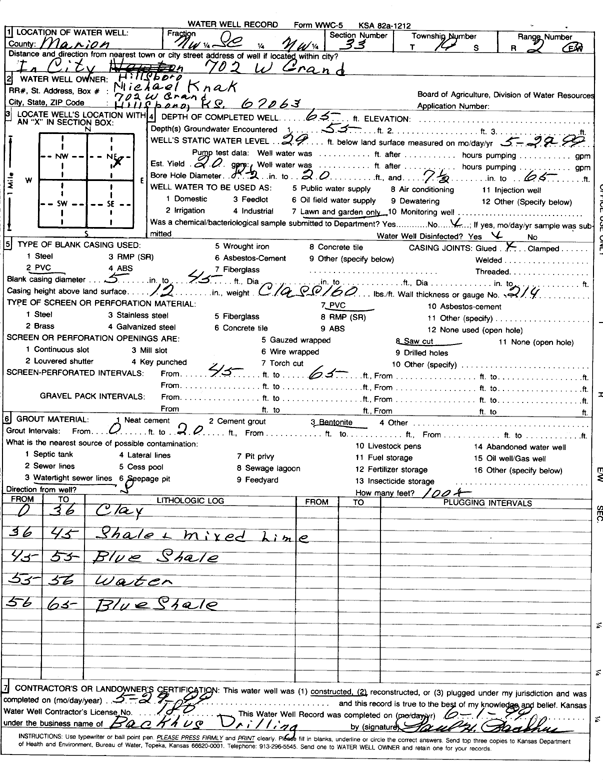 WATER WELL RECORD Form WWC-5 KSA 82a-1212
1 LOCATION OF WATER WELL: Fraction Section Number Township Number Range Number
County: Marion NW ¼ SE ¼ NW ¼ 33 T S R 2 E/W
Distance and direction from nearest town or city street address of well if located within city?
In City Newton 702 W Grand
Hillsboro
2 WATER WELL OWNER: Michael Knak
RR#, St. Address, Box # : 702 W Grand Board of Agriculture, Division of Water Resources
City, State, ZIP Code : Hillsboro, KS. 67063 Application Number:
3 LOCATE WELL'S LOCATION WITH AN "X" IN SECTION BOX:
N
NW NE
W E
SW SE
S
1 Mile
X
4 DEPTH OF COMPLETED WELL 65 ft. ELEVATION:
Depth(s) Groundwater Encountered 1 55 ft. 2 ft. 3 ft.
WELL'S STATIC WATER LEVEL 29 ft. below land surface measured on mo/day/yr 5-29-
Pump test data: Well water was ft. after hours pumping gpm
Est. Yield 20 gpm: Well water was ft. after hours pumping gpm
Bore Hole Diameter 8 1/2 in. to 20 ft., and 7 1/2 in. to 65 ft.
WELL WATER TO BE USED AS: 5 Public water supply 8 Air conditioning 11 Injection well
1 Domestic 3 Feedlot 6 Oil field water supply 9 Dewatering 12 Other (Specify below)
2 Irrigation 4 Industrial 7 Lawn and garden only 10 Monitoring well
Was a chemical/bacteriological sample submitted to Department? Yes No ✓; If yes, mo/day/yr sample was sub-
mitted Water Well Disinfected? Yes ✓ No
5 TYPE OF BLANK CASING USED: 5 Wrought iron 8 Concrete tile CASING JOINTS: Glued ✓ Clamped
1 Steel 3 RMP (SR) 6 Asbestos-Cement 9 Other (specify below) Welded
2 PVC 4 ABS 7 Fiberglass Threaded
Blank casing diameter 5 in. to 45 ft., Dia in. to ft., Dia in. to ft.
Casing height above land surface 12 in., weight Class 160 lbs./ft. Wall thickness or gauge No. .214
TYPE OF SCREEN OR PERFORATION MATERIAL: 7 PVC 10 Asbestos-cement
1 Steel 3 Stainless steel 5 Fiberglass 8 RMP (SR) 11 Other (specify)
2 Brass 4 Galvanized steel 6 Concrete tile 9 ABS 12 None used (open hole)
SCREEN OR PERFORATION OPENINGS ARE: 5 Gauzed wrapped 8 Saw cut 11 None (open hole)
1 Continuous slot 3 Mill slot 6 Wire wrapped 9 Drilled holes
2 Louvered shutter 4 Key punched 7 Torch cut 10 Other (specify)
SCREEN-PERFORATED INTERVALS: From 45 ft. to 65 ft., From ft. to ft.
From ft. to ft., From ft. to ft.
GRAVEL PACK INTERVALS: From ft. to ft., From ft. to ft.
From ft. to ft., From ft. to ft.
6 GROUT MATERIAL: 1 Neat cement 2 Cement grout 3 Bentonite 4 Other
Grout Intervals: From 0 ft. to 20 ft., From ft. to ft., From ft. to ft.
What is the nearest source of possible contamination: 10 Livestock pens 14 Abandoned water well
1 Septic tank 4 Lateral lines 7 Pit privy 11 Fuel storage 15 Oil well/Gas well
2 Sewer lines 5 Cess pool 8 Sewage lagoon 12 Fertilizer storage 16 Other (specify below)
3 Watertight sewer lines 6 Seepage pit 9 Feedyard 13 Insecticide storage
Direction from well? How many feet? 100+
FROM TO LITHOLOGIC LOG FROM TO PLUGGING INTERVALS
0 36 Clay
36 45 Shale + Mixed Lime
45 55 Blue Shale
55 56 Water
56 65 Blue Shale
7 CONTRACTOR'S OR LANDOWNER'S CERTIFICATION: This water well was (1) constructed, (2) reconstructed, or (3) plugged under my jurisdiction and was
completed on (mo/day/year) 5-29- and this record is true to the best of my knowledge and belief. Kansas
Water Well Contractor's License No. This Water Well Record was completed on (mo/day/yr) 6-1-
under the business name of Backhus Drilling by (signature) Paul H. Backhus
INSTRUCTIONS: Use typewriter or ball point pen. PLEASE PRESS FIRMLY and PRINT clearly. Please fill in blanks, underline or circle the correct answers. Send top three copies to Kansas Department
of Health and Environment, Bureau of Water, Topeka, Kansas 66620-0001. Telephone: 913-296-5545. Send one to WATER WELL OWNER and retain one for your records.